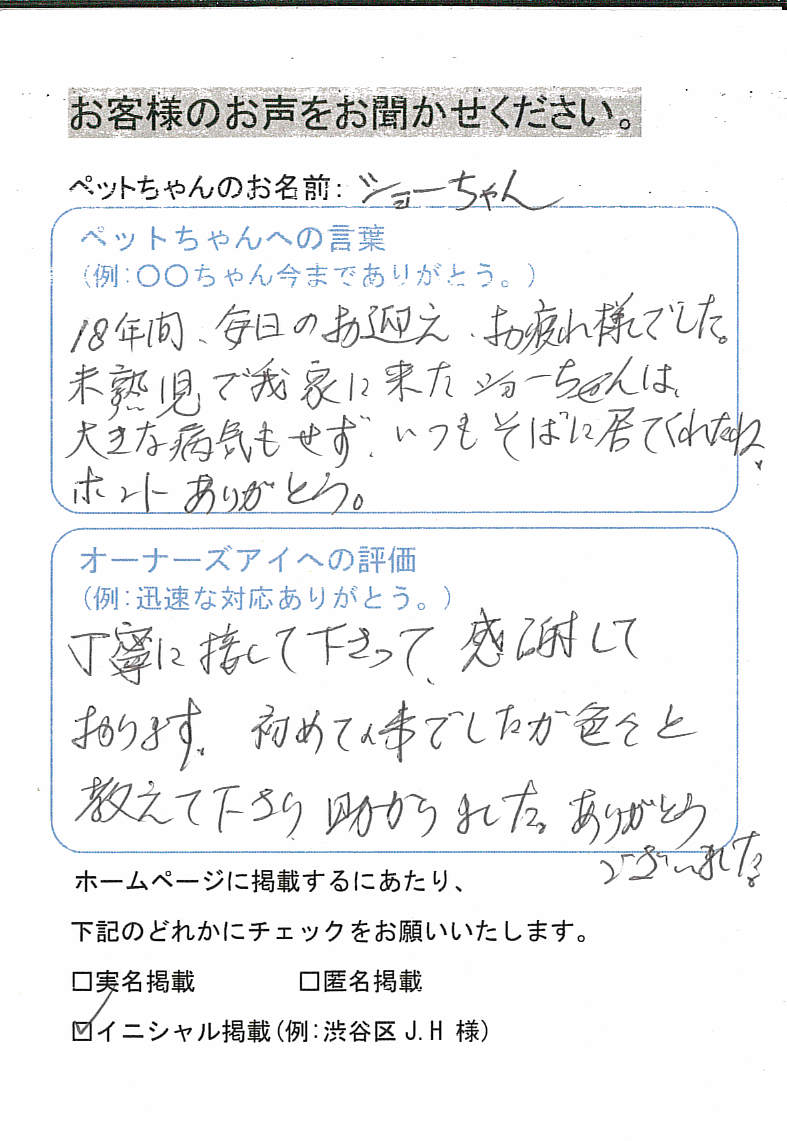 お客様のお声をお聞かせください。
ペットちゃんのお名前：ショーちゃん
ペットちゃんへの言葉
（例：〇〇ちゃん今までありがとう。）
18年間、毎日のお迎え、お疲れ様でした。
未熟児で我家に来たショーちゃんは、
大きな病気もせず、いつもそばに居てくれたね、
ホントありがとう。
オーナーズアイへの評価
（例：迅速な対応ありがとう。）
丁寧に接して下さって、感謝して
おります。初めての事でしたが色々と
教えて下さり助かりました。ありがとう
ございました。
ホームページに掲載するにあたり、
下記のどれかにチェックをお願いいたします。
□実名掲載 □匿名掲載
☑イニシャル掲載（例：渋谷区 J.H 様）